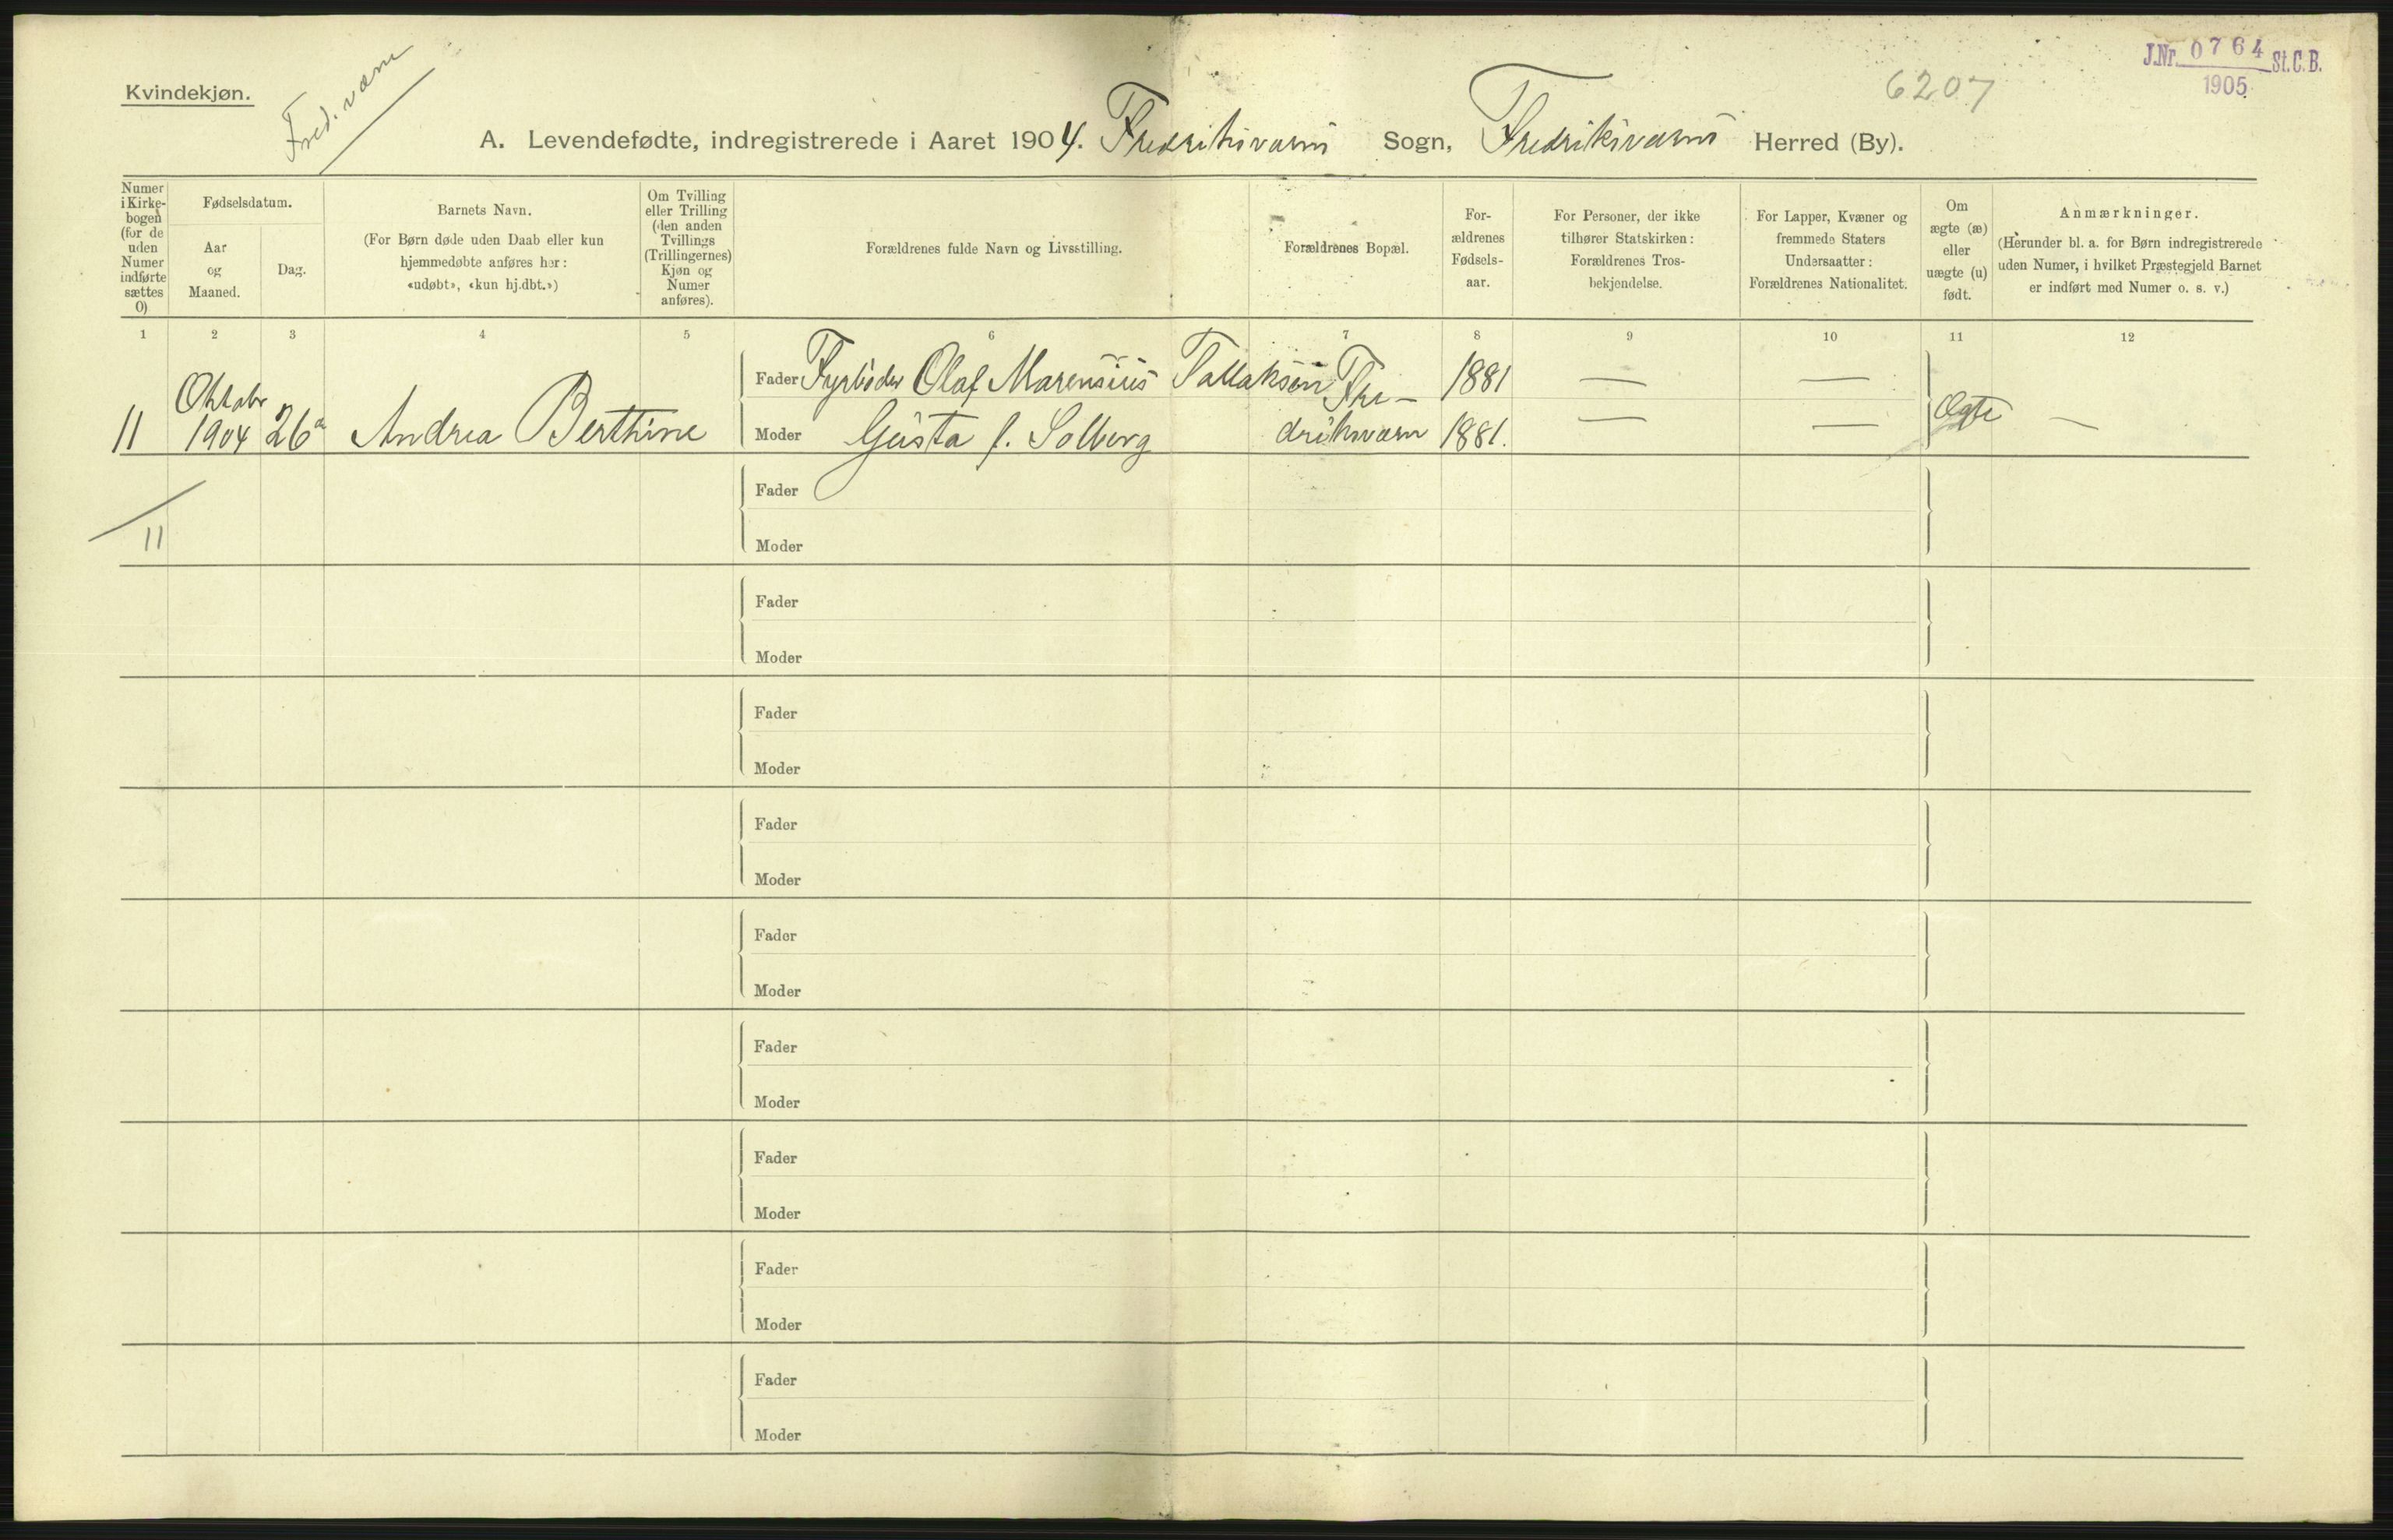 J.Nr. 0764 St.C.B.
1905
6207
Kvindekjøn.
Fred.værn
A. Levendefødte, indregistrerede i Aaret 1904. Fredriksværns Sogn, Fredriksværns Herred (By).
Numer i Kirkebogen (for de uden Numer indførte sættes 0)
Fødselsdatum.
Aar og Maaned.
Dag.
Barnets Navn.
(For Børn døde uden Daab eller kun hjemmedøbte anføres her: «udøbt», «kun hj.dbt.»)
Om Tvilling eller Trilling (den anden Tvillings (Trillingernes) Kjøn og Numer anføres).
Forældrenes fulde Navn og Livsstilling.
Forældrenes Bopæl.
Forældrenes Fødselsaar.
For Personer, der ikke tilhører Statskirken: Forældrenes Trosbekjendelse.
For Lapper, Kvæner og fremmede Staters Undersaatter: Forældrenes Nationalitet.
Om ægte (æ) eller uægte (u) født.
Anmærkninger.
(Herunder bl. a. for Børn indregistrerede uden Numer, i hvilket Præstegjeld Barnet er indført med Numer o. s. v.)
1 2 3 4 5 6 7 8 9 10 11 12
Fader Fyrbøder Olaf Marensius Tallaksen Fre- 1881 — —
11 Oktobr 1904 26 Andrea Berthine Moder Gusta f. Solberg driksværn 1881. — — Ægte —
11
Fader
Moder
Fader
Moder
Fader
Moder
Fader
Moder
Fader
Moder
Fader
Moder
Fader
Moder
Fader
Moder
Fader
Moder